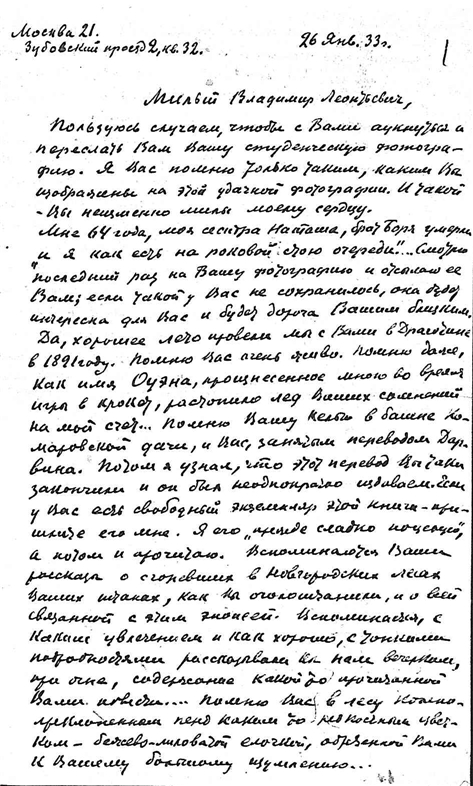 Москва 21.
Зубовский проезд 2, кв. 32.
26 Янв. 33 г.
1
Милый Владимир Леонтьевич,
Пользуюсь случаем, чтобы с Вами аукнуться и
переслать Вам Вашу студенческую фотогра-
фию. Я Вас помню только таким, каким Вы
изображены на этой удачной фотографии. И такой
- Вы неизменно милы моему сердцу.
Мне 64 года, моя сестра Наташа, брат Боря умерли
"и я как есть на роковой стою очереди"... Смотрю
последний раз на Вашу фотографию и отсылаю ее
Вам; если такой у Вас не сохранилось, она будет
интересна для Вас и будет дорога Вашим близким.
Да, хорошее лето провели мы с Вами в
в 1891 году. Помню Вас очень живо. Помню даже,
как имя Оуэна, произнесенное мною во время
игры в крокет, растопило лед Ваших сомнений
на мой счет... Помню Вашу келью в башне Ко-
маровской дачи, и Вас, занятым переводом Дар-
вина. Потом я узнал, что этот перевод Вы таки
закончили и он был неоднократно издаваем. Если
у Вас есть свободный экземпляр этой книги - при-
шлите его мне. Я его "прежде сладко поцелую",
а потом и прочитаю. Вспоминаются Ваши
рассказы о сгоревших в Новгородских лесах
Ваших штанах, как Вы и о всей
связанной с этим эпопеей. Вспоминается, с
каким увлечением и как хорошо, с тонкими
подробностями рассказывали Вы нам вечерком,
при огне, содержание какой то прочитанной
Вами повести.... Помню Вас в лесу колено-
преклоненным пред каким то невзрачным цвет-
ком - бежево-лиловатой елочкой, обретенной Вами
к Вашему большому изумлению...